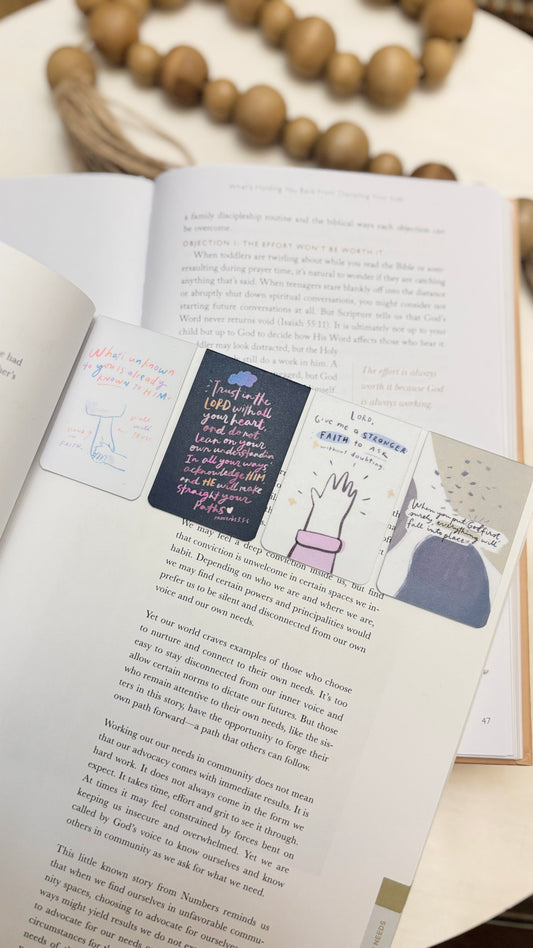 What's Holding You Back From Discipling Your Kids
a family discipleship routine and the biblical ways each objection can
be overcome.
OBJECTION 1: THE EFFORT WON'T BE WORTH IT
When toddlers are twirling about while you read the Bible or som-
ersaulting during prayer time, it's natural to wonder if they are catching
anything that's said. When teenagers stare blankly off into the distance
or abruptly shut down spiritual conversations, you might consider not
starting future conversations at all. But Scripture tells us that God's
Word never returns void (Isaiah 55:11). It is ultimately not up to your
child but up to God to decide how His Word affects those who hear it.
may look distracted, but the Holy
still do a work in him. A
but God
The effort is always
worth it because God
is always working.
47
e had
her's
What's unknown
to you is already
KNOWN TO HIM.
Trust in the
LORD with all
your heart,
and do not
lean on your
own understandin
In all your ways
acknowledge HIM
and HE will make
straight your
Paths
PROVERBS 3:5-6
LORD,
Give me a STRONGER
FAITH to ASK
without doubting.
When you put God first,
surely, everything will
fall into place.
We may feel a deep conviction inside us, but find
that conviction is unwelcome in certain spaces we in-
habit. Depending on who we are and where we are,
we may find certain powers and principalities would
prefer us to be silent and disconnected from our own
voice and our own needs.
Yet our world craves examples of those who choose
to nurture and connect to their own needs. It's too
easy to stay disconnected from our inner voice and
allow certain norms to dictate our futures. But those
who remain attentive to their own needs, like the sis-
ters in this story, have the opportunity to forge their
own path forward—a path that others can follow.
Working out our needs in community does not mean
that our advocacy comes with immediate results. It is
hard work. It does not always come in the form we
expect. It takes time, effort and grit to see it through.
At times it may feel constrained by forces bent on
keeping us insecure and overwhelmed. Yet we are
called by God's voice to know ourselves and know
others in community as we ask for what we need.
This little known story from Numbers reminds us
that when we find ourselves in unfavorable commu-
nity spaces, choosing to advocate for ourselves
ways might yield results we do not ex
to advocate for our needs
circumstances for th
needs of th
NEEDS